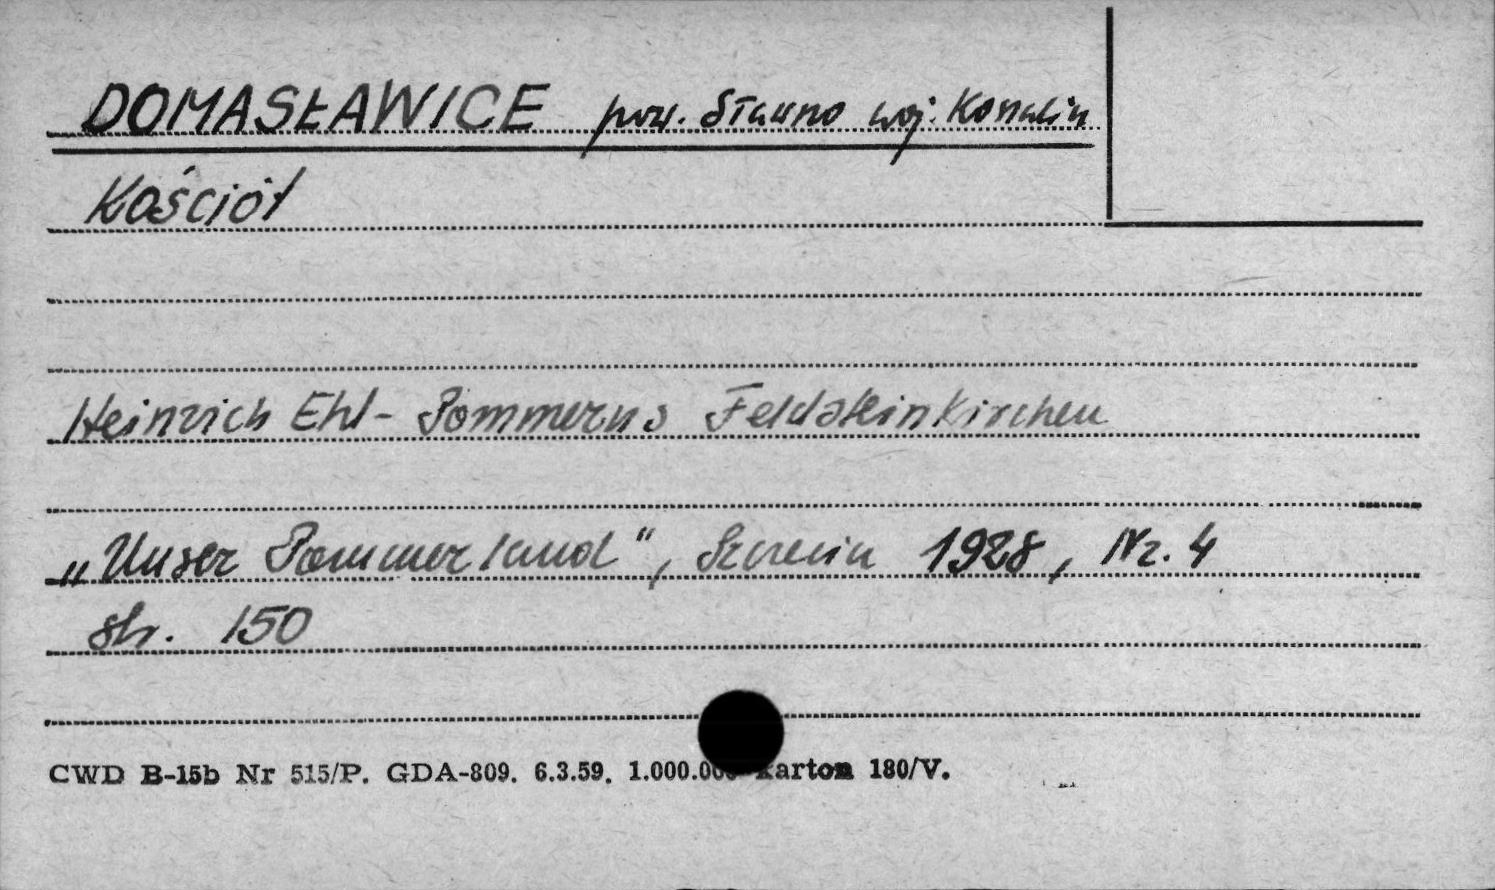 DOMASŁAWICE pow. Sławno woj. Koszalin
Kościół
Heinrich Ehl - Pommerns Feldsteinkirchen
„Unser Pommerland", Szczecin 1928, Nr. 4
str. 150
CWD B-15b Nr 515/P. GDA-809. 6.3.59. 1.000.000 karton 180/V.